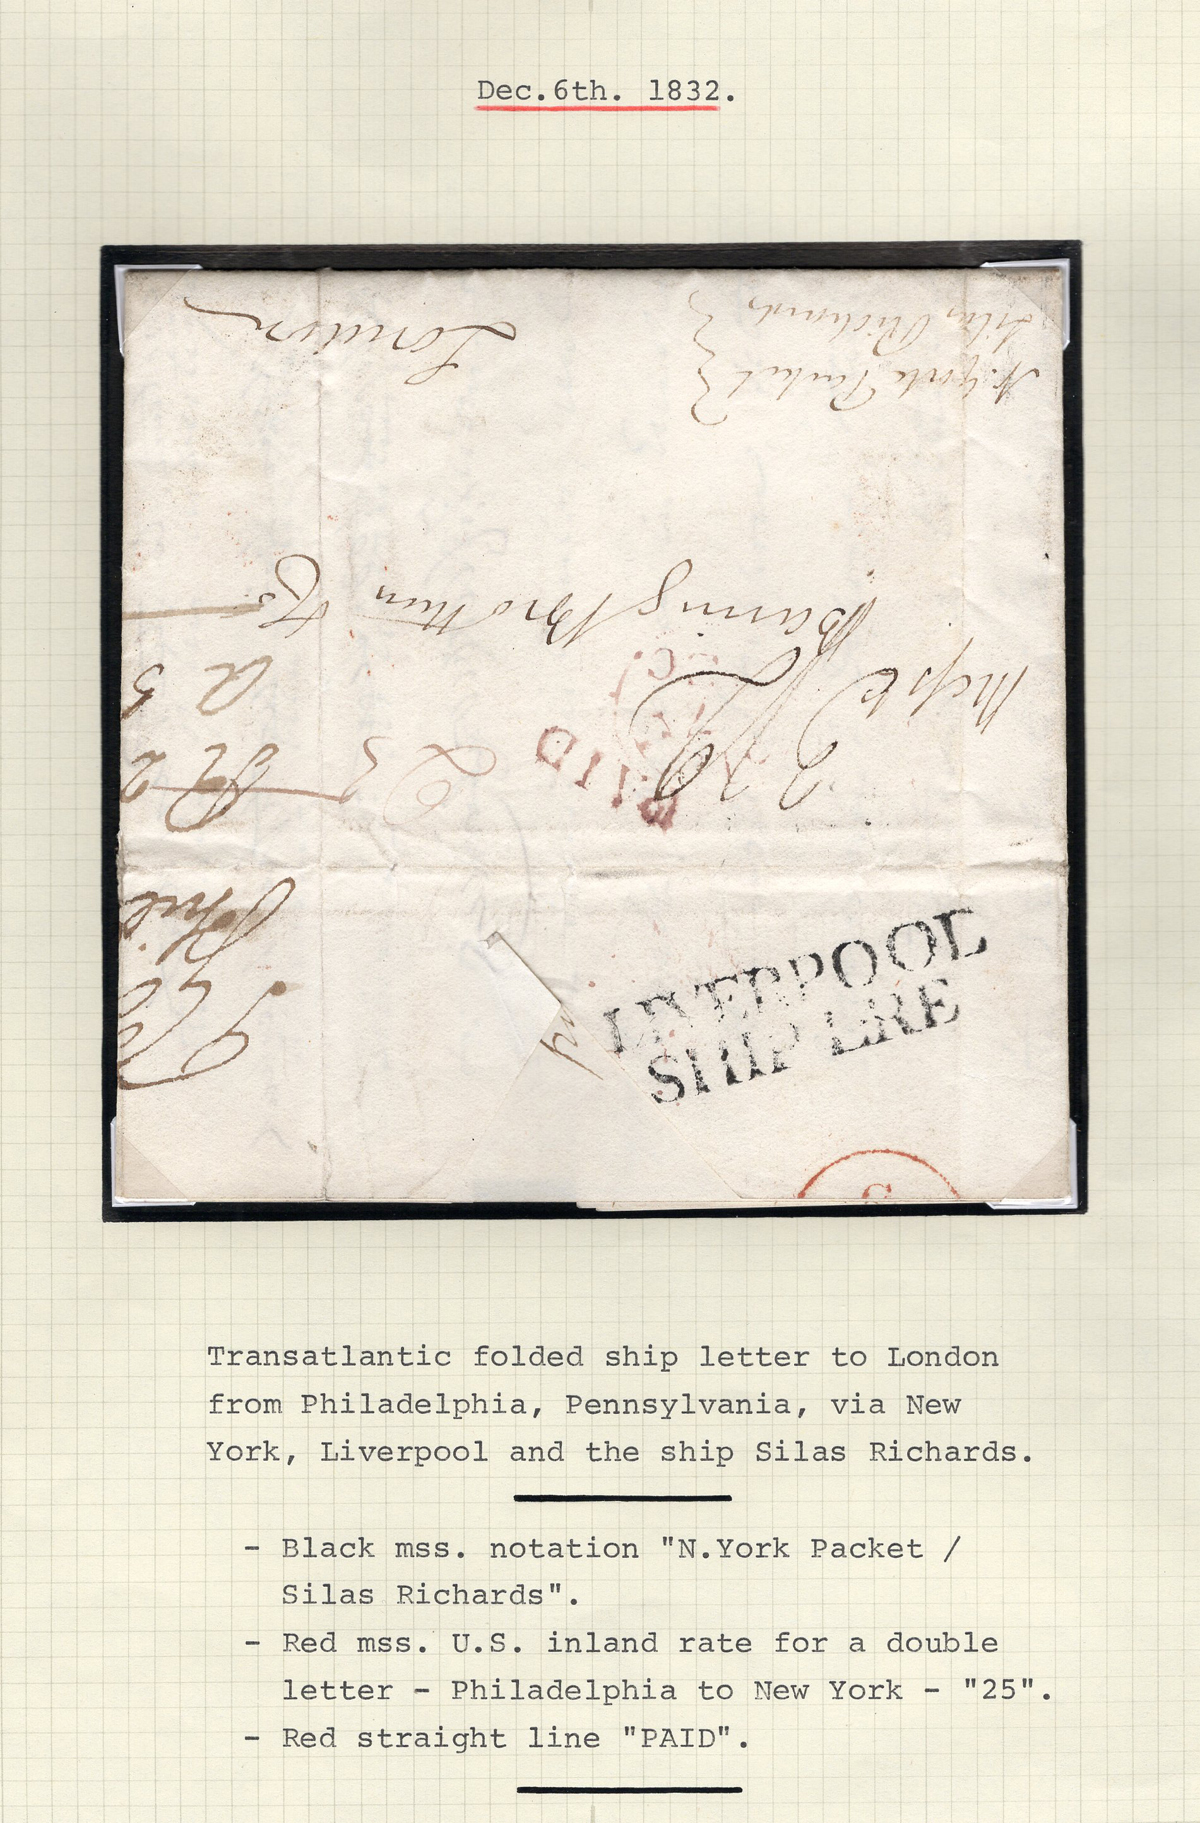 Dec.6th. 1832.
London
N. York Packet
Silas Richards
Baring Brothers & Co
Messrs
PAID
25
2/9
R 2
Phil
LIVERPOOL
SHIP LRE
Transatlantic folded ship letter to London
from Philadelphia, Pennsylvania, via New
York, Liverpool and the ship Silas Richards.
- Black mss. notation "N.York Packet /
Silas Richards".
- Red mss. U.S. inland rate for a double
letter - Philadelphia to New York - "25".
- Red straight line "PAID".